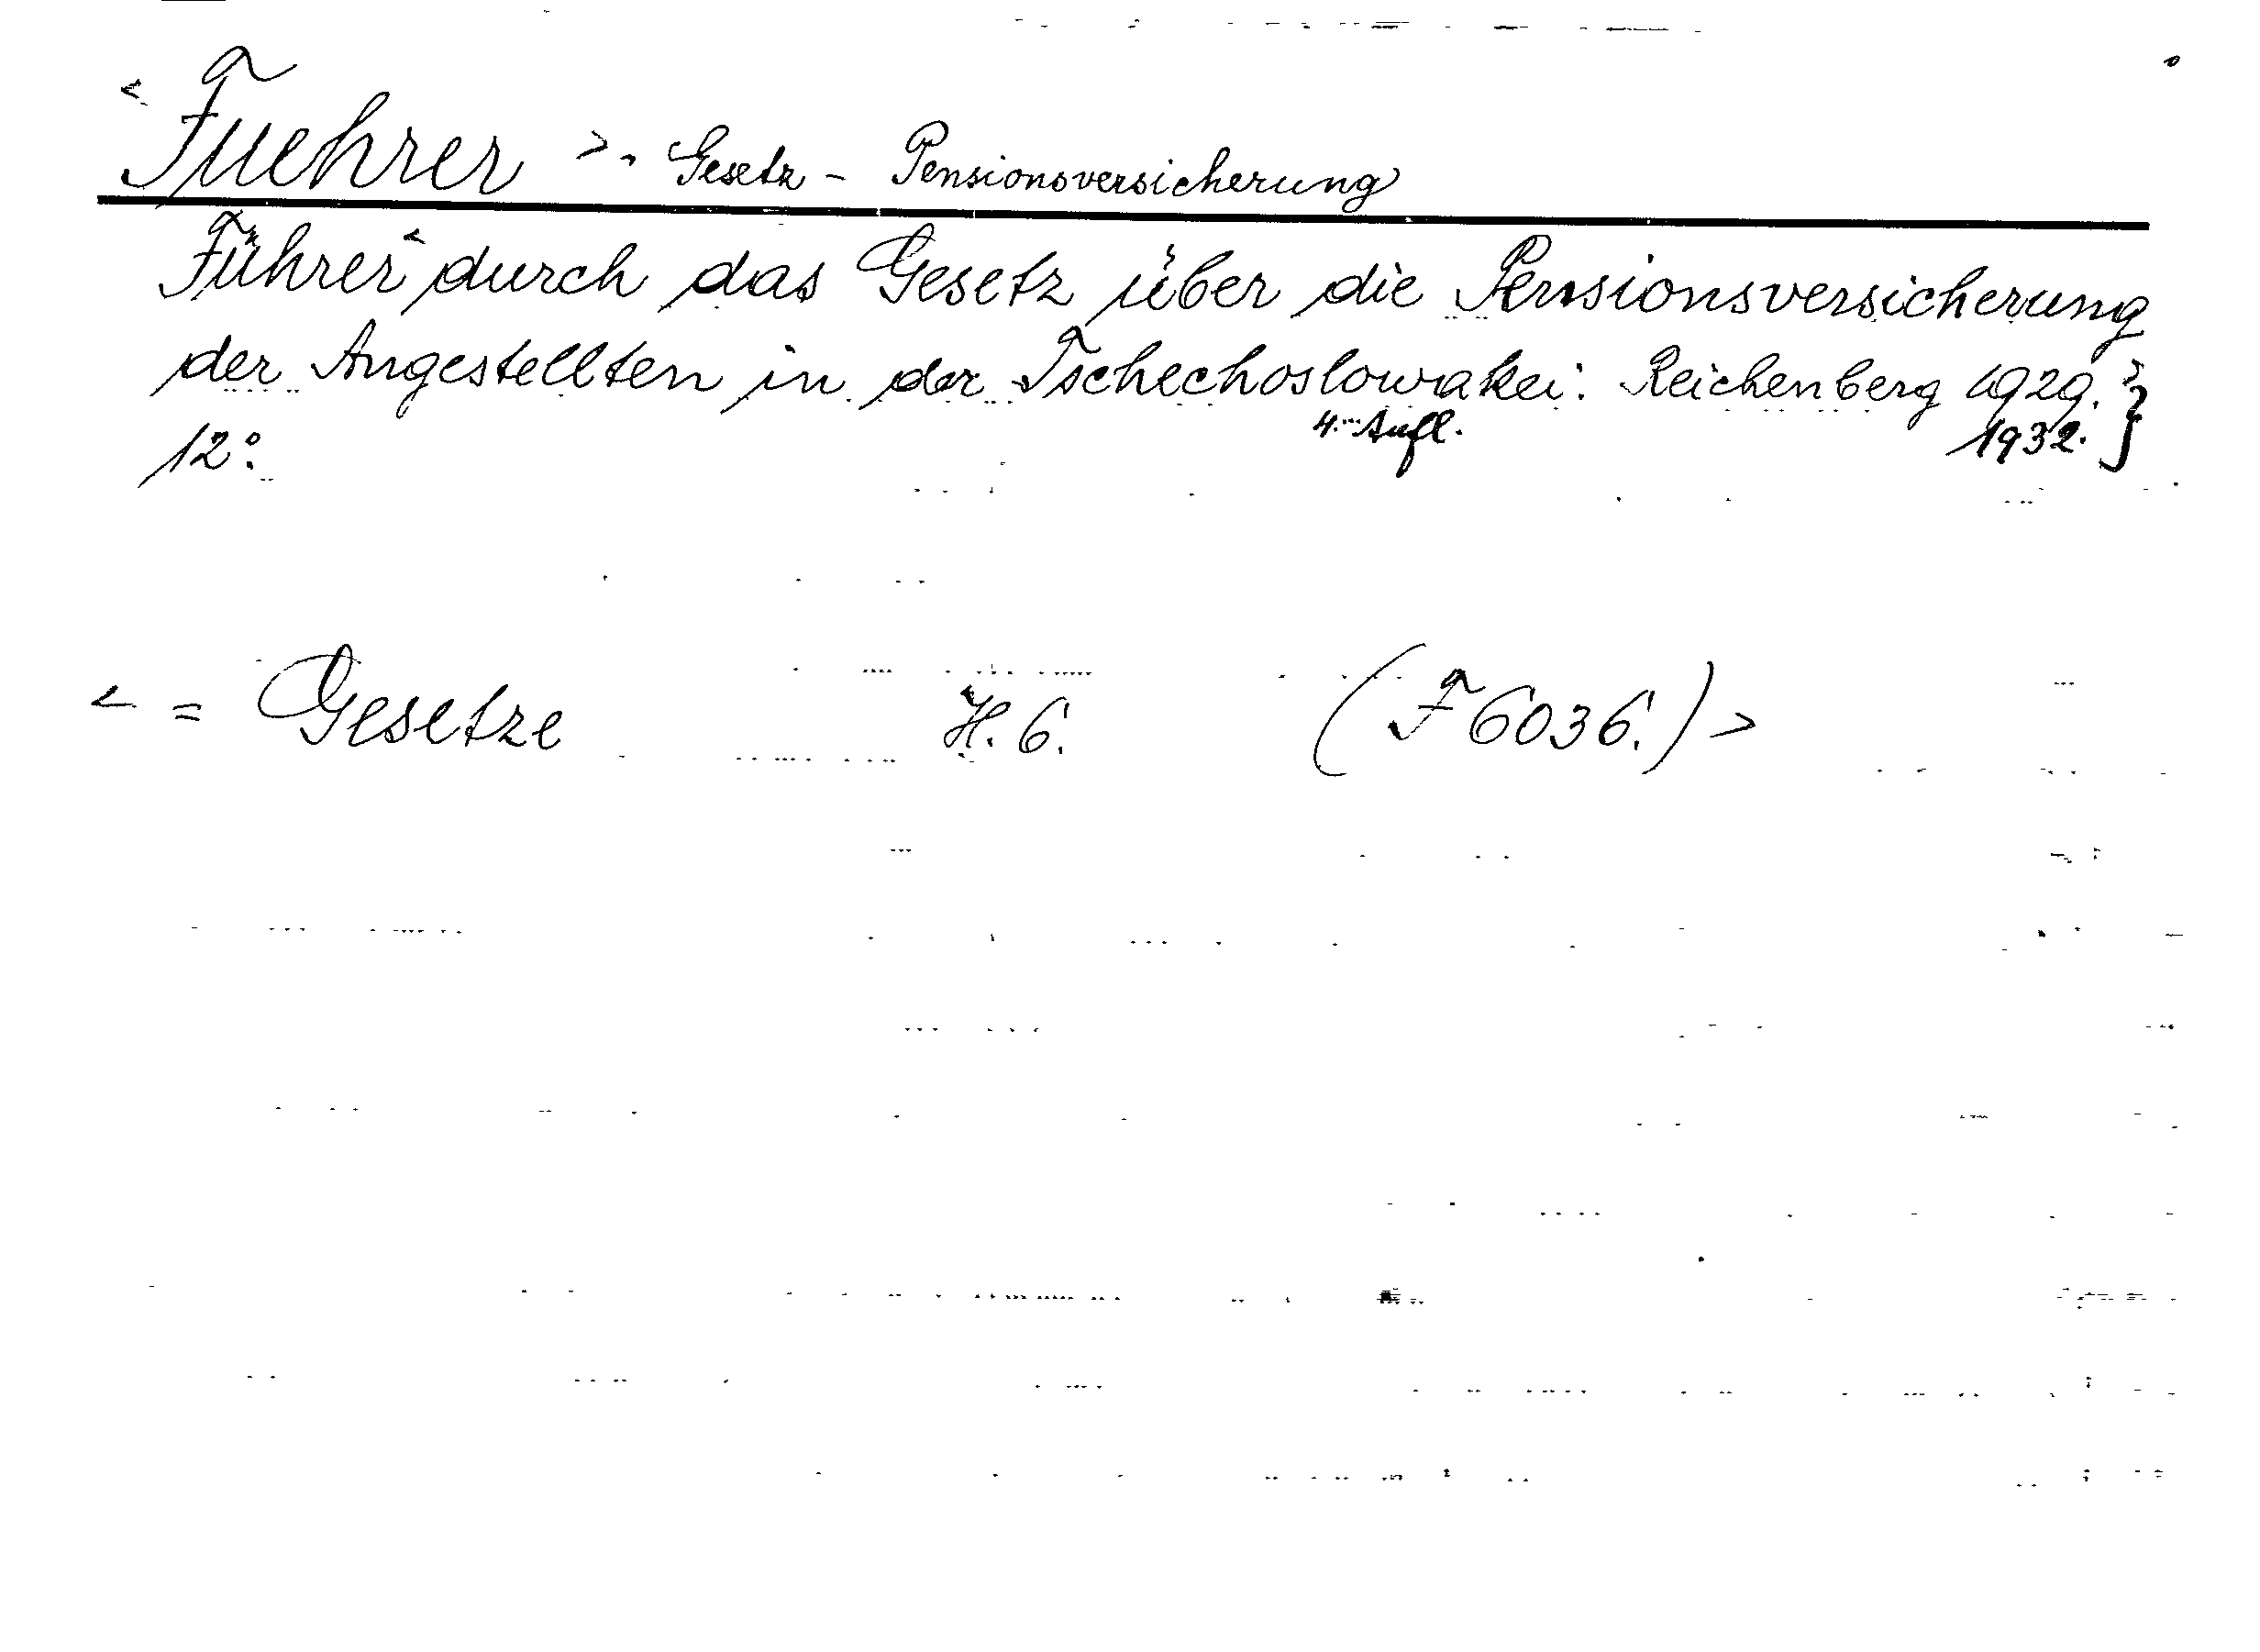 < Fuehrer >. Gesetz - Pensionsversicherung
Führer < durch das Gesetz über die Pensionsversicherung
der Angestellten in der Tschechoslowakei: Reichenberg 1929. }
12°. 4. Aufl. 1932. }
< = Gesetze H. 6. (F 6036.) >